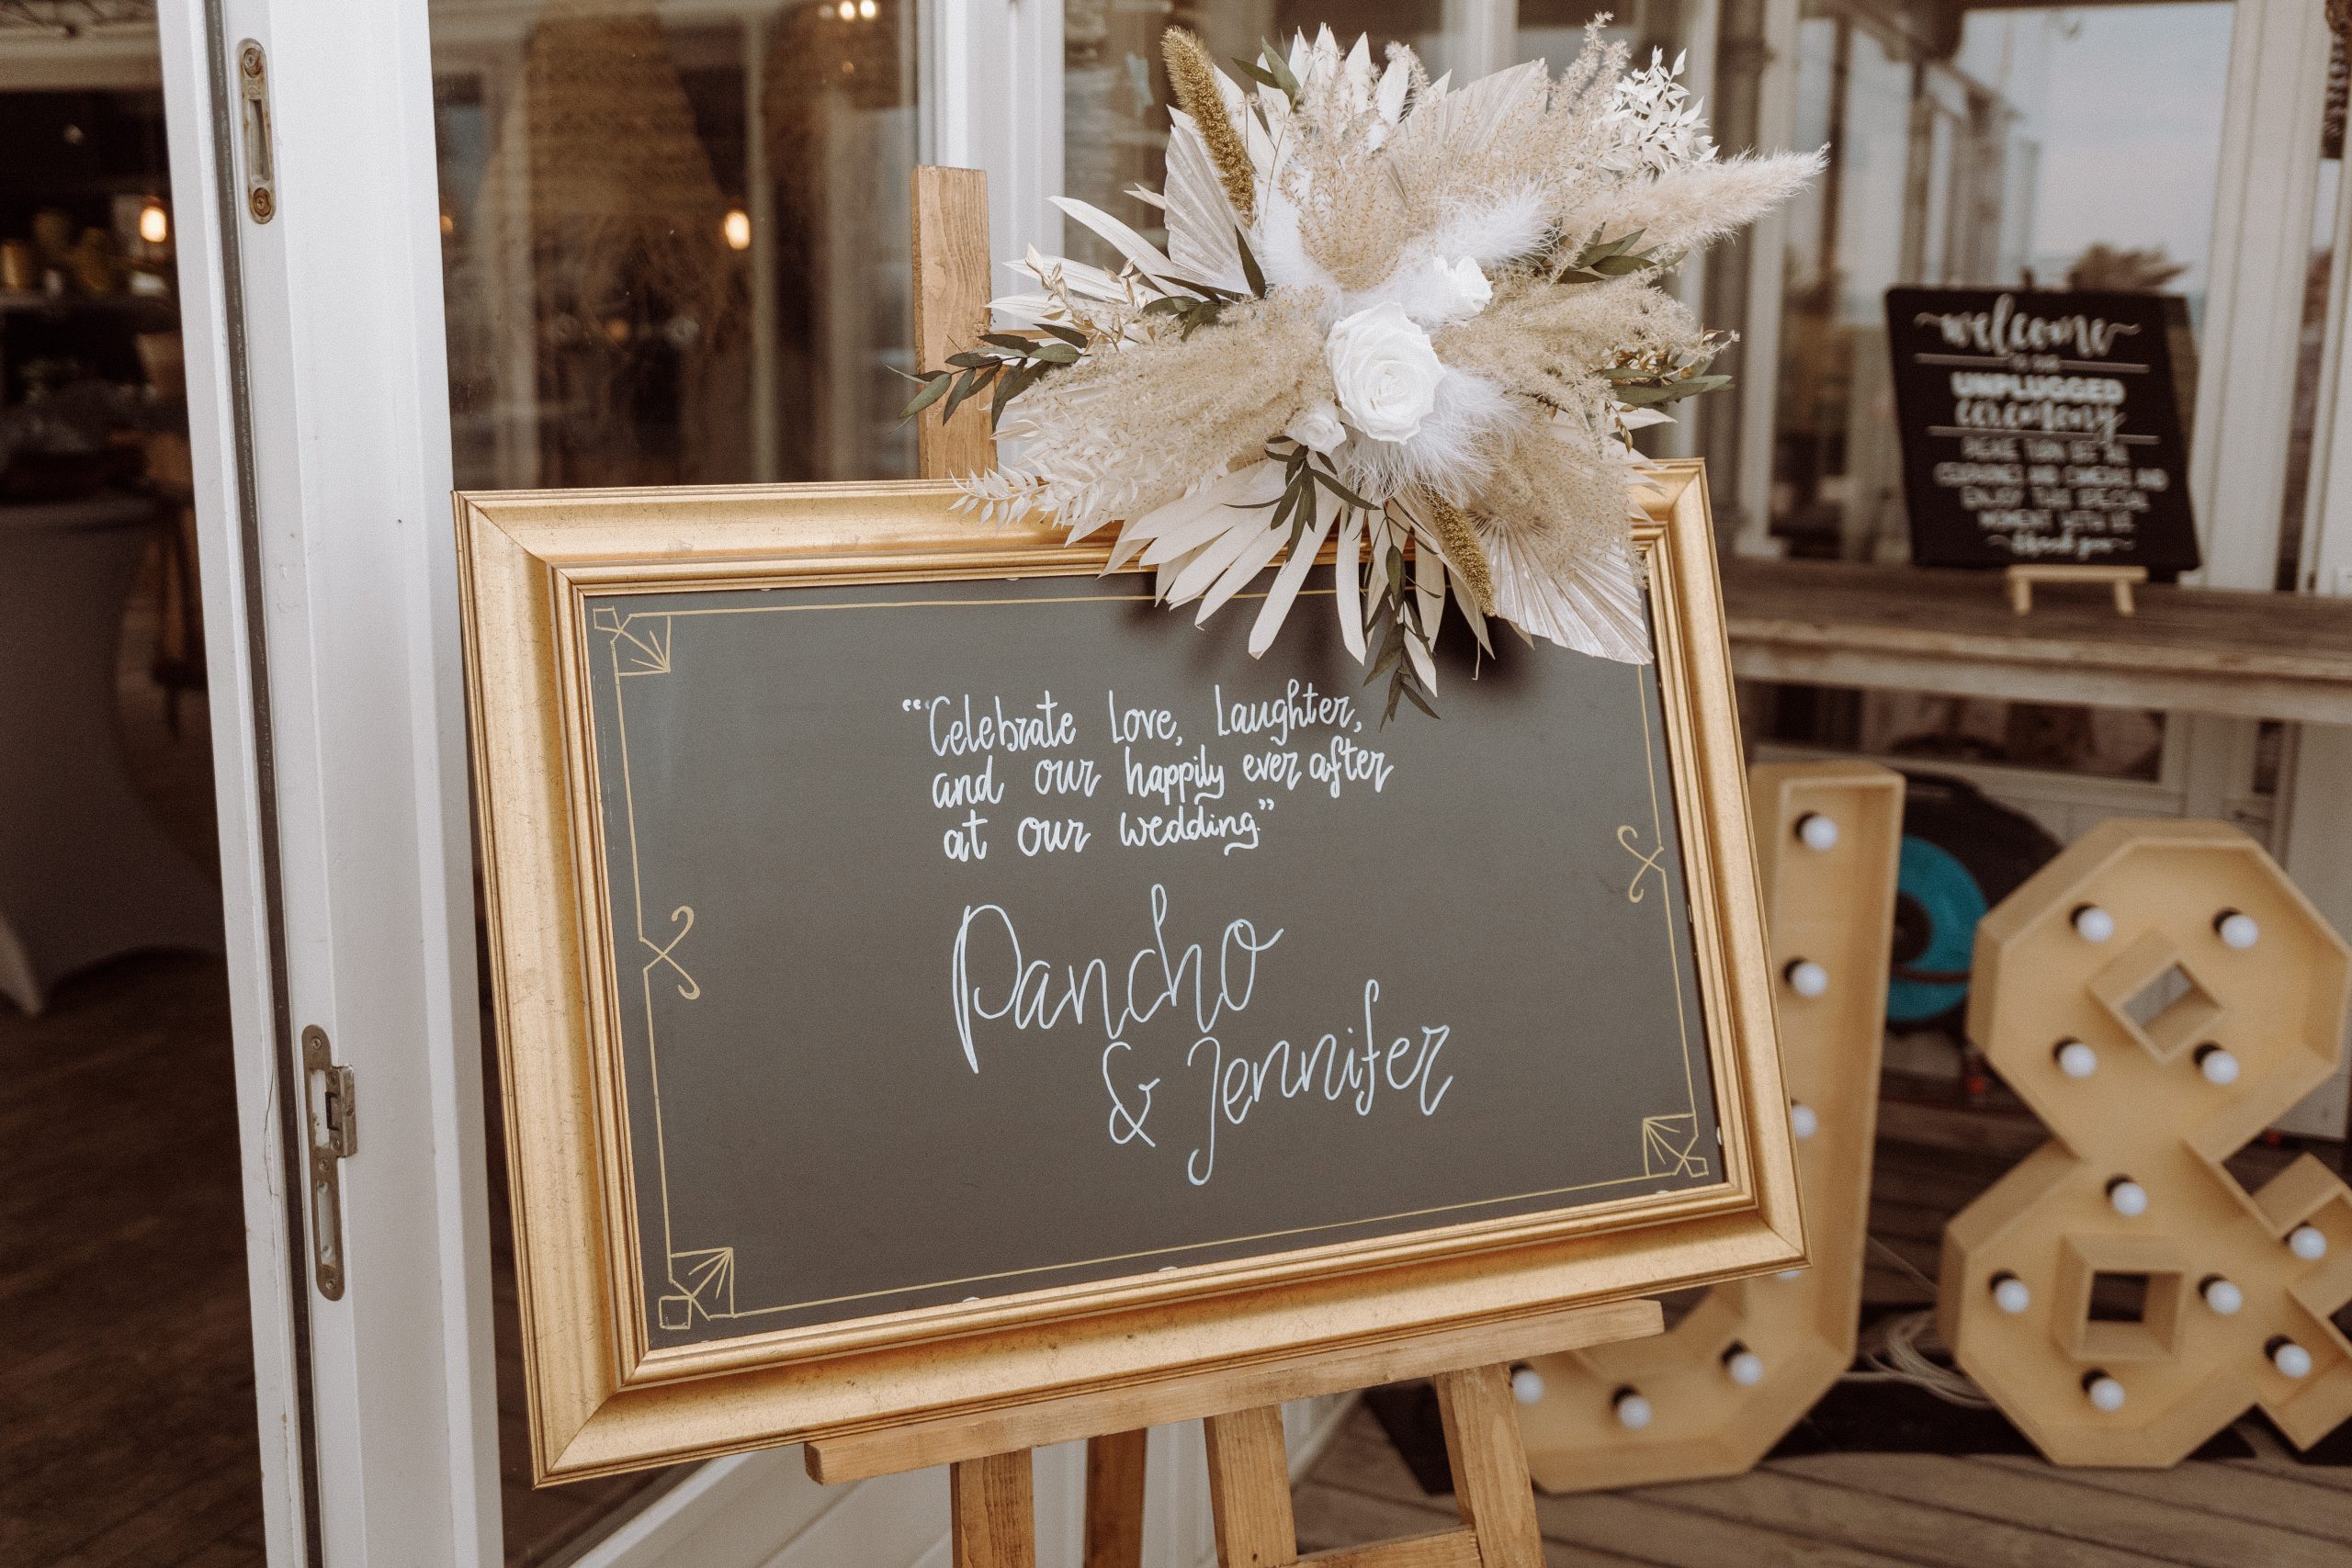 “Celebrate Love, Laughter,
and our happily ever after
at our wedding.”
Pancho
& Jennifer
welcome
to our
UNPLUGGED
ceremony
PLEASE TURN OFF ALL
CELLPHONES AND CAMERAS AND
ENJOY THIS SPECIAL
MOMENT WITH US
thank you
J &